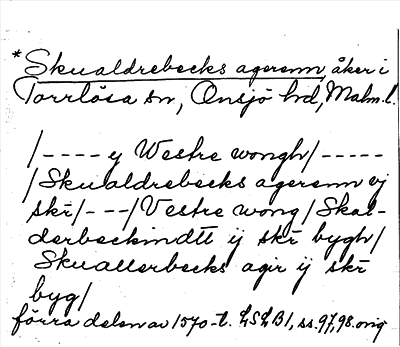 *Skualdrebecks agerenn, åker i
Torrlösa sn, Onsjö hd, Malm. l.
/---- y Westre wongh/-----
/Skualdrebecks agerenn vj
skr/---/Vestre wong/Skal-
derbeckmdtt ij skr bygh/
Skuallerbecks agir ij skr
byg/
förra delen av 1570-t. LSLB1, ss. 97, 98. orig